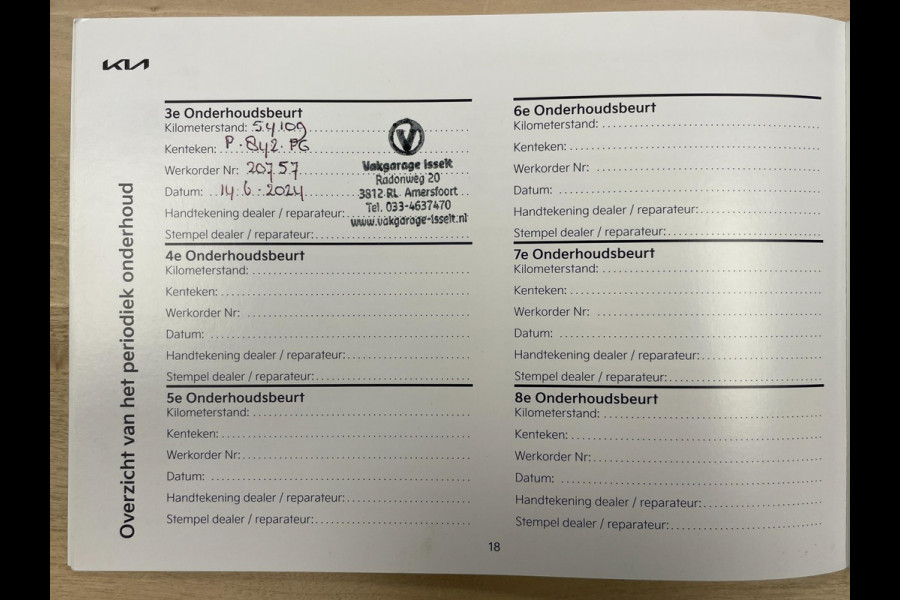 KIA
Overzicht van het periodiek onderhoud
3e Onderhoudsbeurt
Kilometerstand: 54109
Kenteken: P-842-PG
Werkorder Nr: 20757
Datum: 14-6-2024
Handtekening dealer / reparateur:
Stempel dealer / reparateur:
V
Vakgarage Isselt
Radonweg 20
3812 RL Amersfoort
Tel. 033-4637470
www.vakgarage-isselt.nl
4e Onderhoudsbeurt
Kilometerstand:
Kenteken:
Werkorder Nr:
Datum:
Handtekening dealer / reparateur:
Stempel dealer / reparateur:
5e Onderhoudsbeurt
Kilometerstand:
Kenteken:
Werkorder Nr:
Datum:
Handtekening dealer / reparateur:
Stempel dealer / reparateur:
6e Onderhoudsbeurt
Kilometerstand:
Kenteken:
Werkorder Nr:
Datum:
Handtekening dealer / reparateur:
Stempel dealer / reparateur:
7e Onderhoudsbeurt
Kilometerstand:
Kenteken:
Werkorder Nr:
Datum:
Handtekening dealer / reparateur:
Stempel dealer / reparateur:
8e Onderhoudsbeurt
Kilometerstand:
Kenteken:
Werkorder Nr:
Datum:
Handtekening dealer / reparateur:
Stempel dealer / reparateur:
18